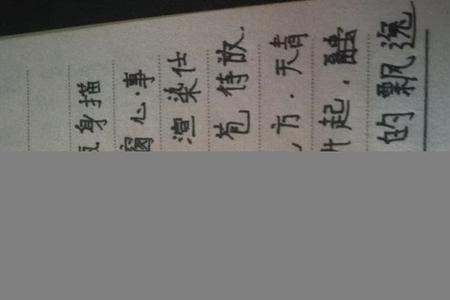 身描
窗心事
渲染仕
苞待放.
方.天青
起,
的飘逸